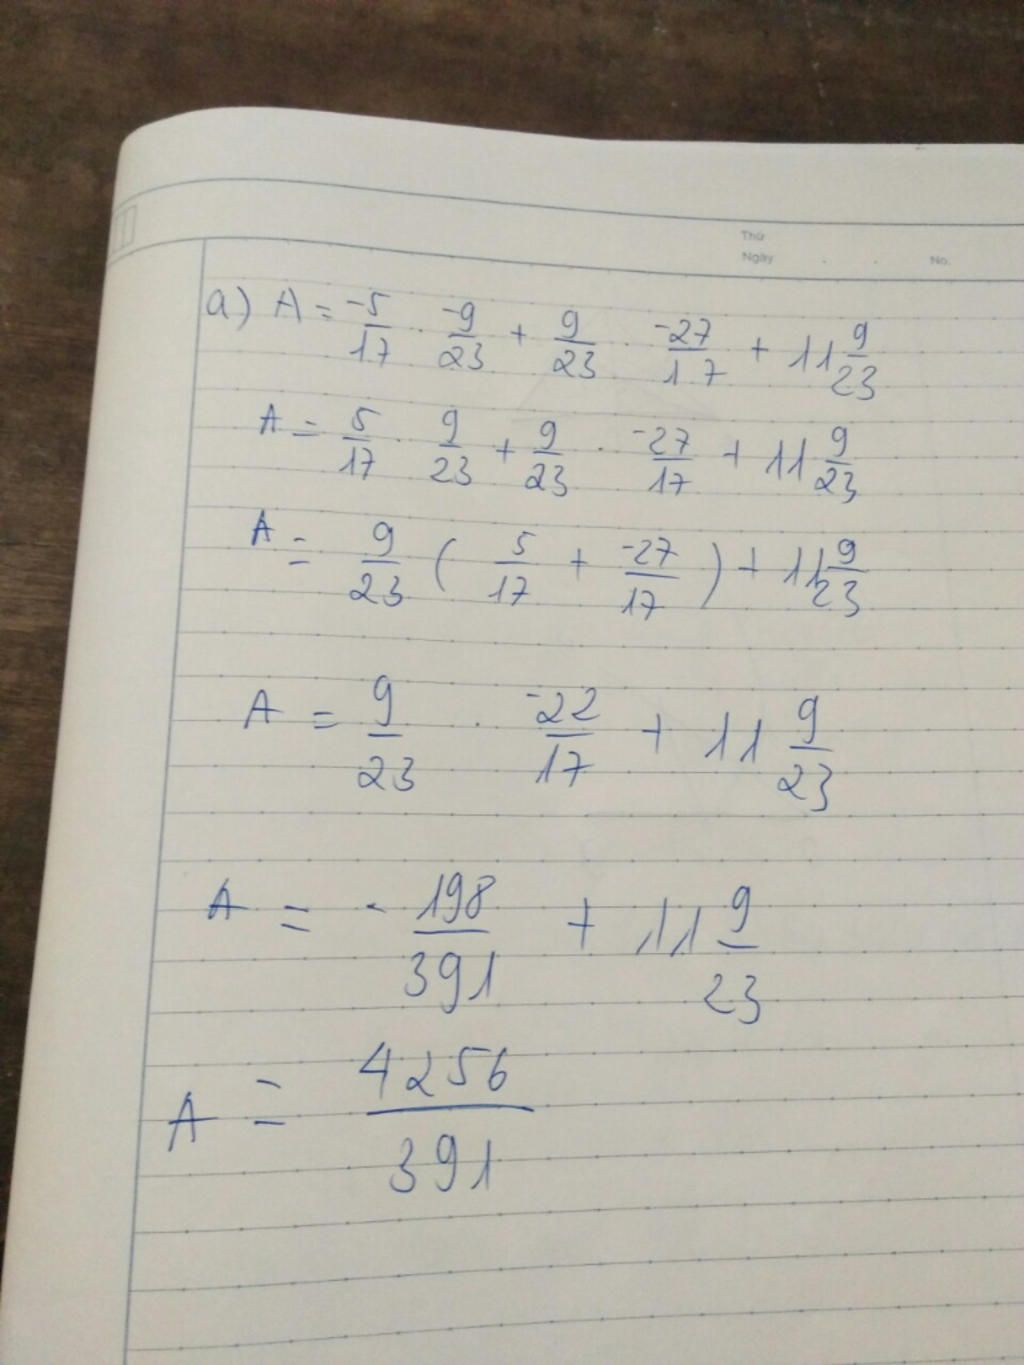 Thứ
Ngày . . No.
a) A = -5/17 . -9/23 + 9/23 . -27/17 + 11 9/23
A = 5/17 . 9/23 + 9/23 . -27/17 + 11 9/23
A = 9/23 ( 5/17 + -27/17 ) + 11 9/23
A = 9/23 . -22/17 + 11 9/23
A = - 198/391 + 11 9/23
A = 4256/391